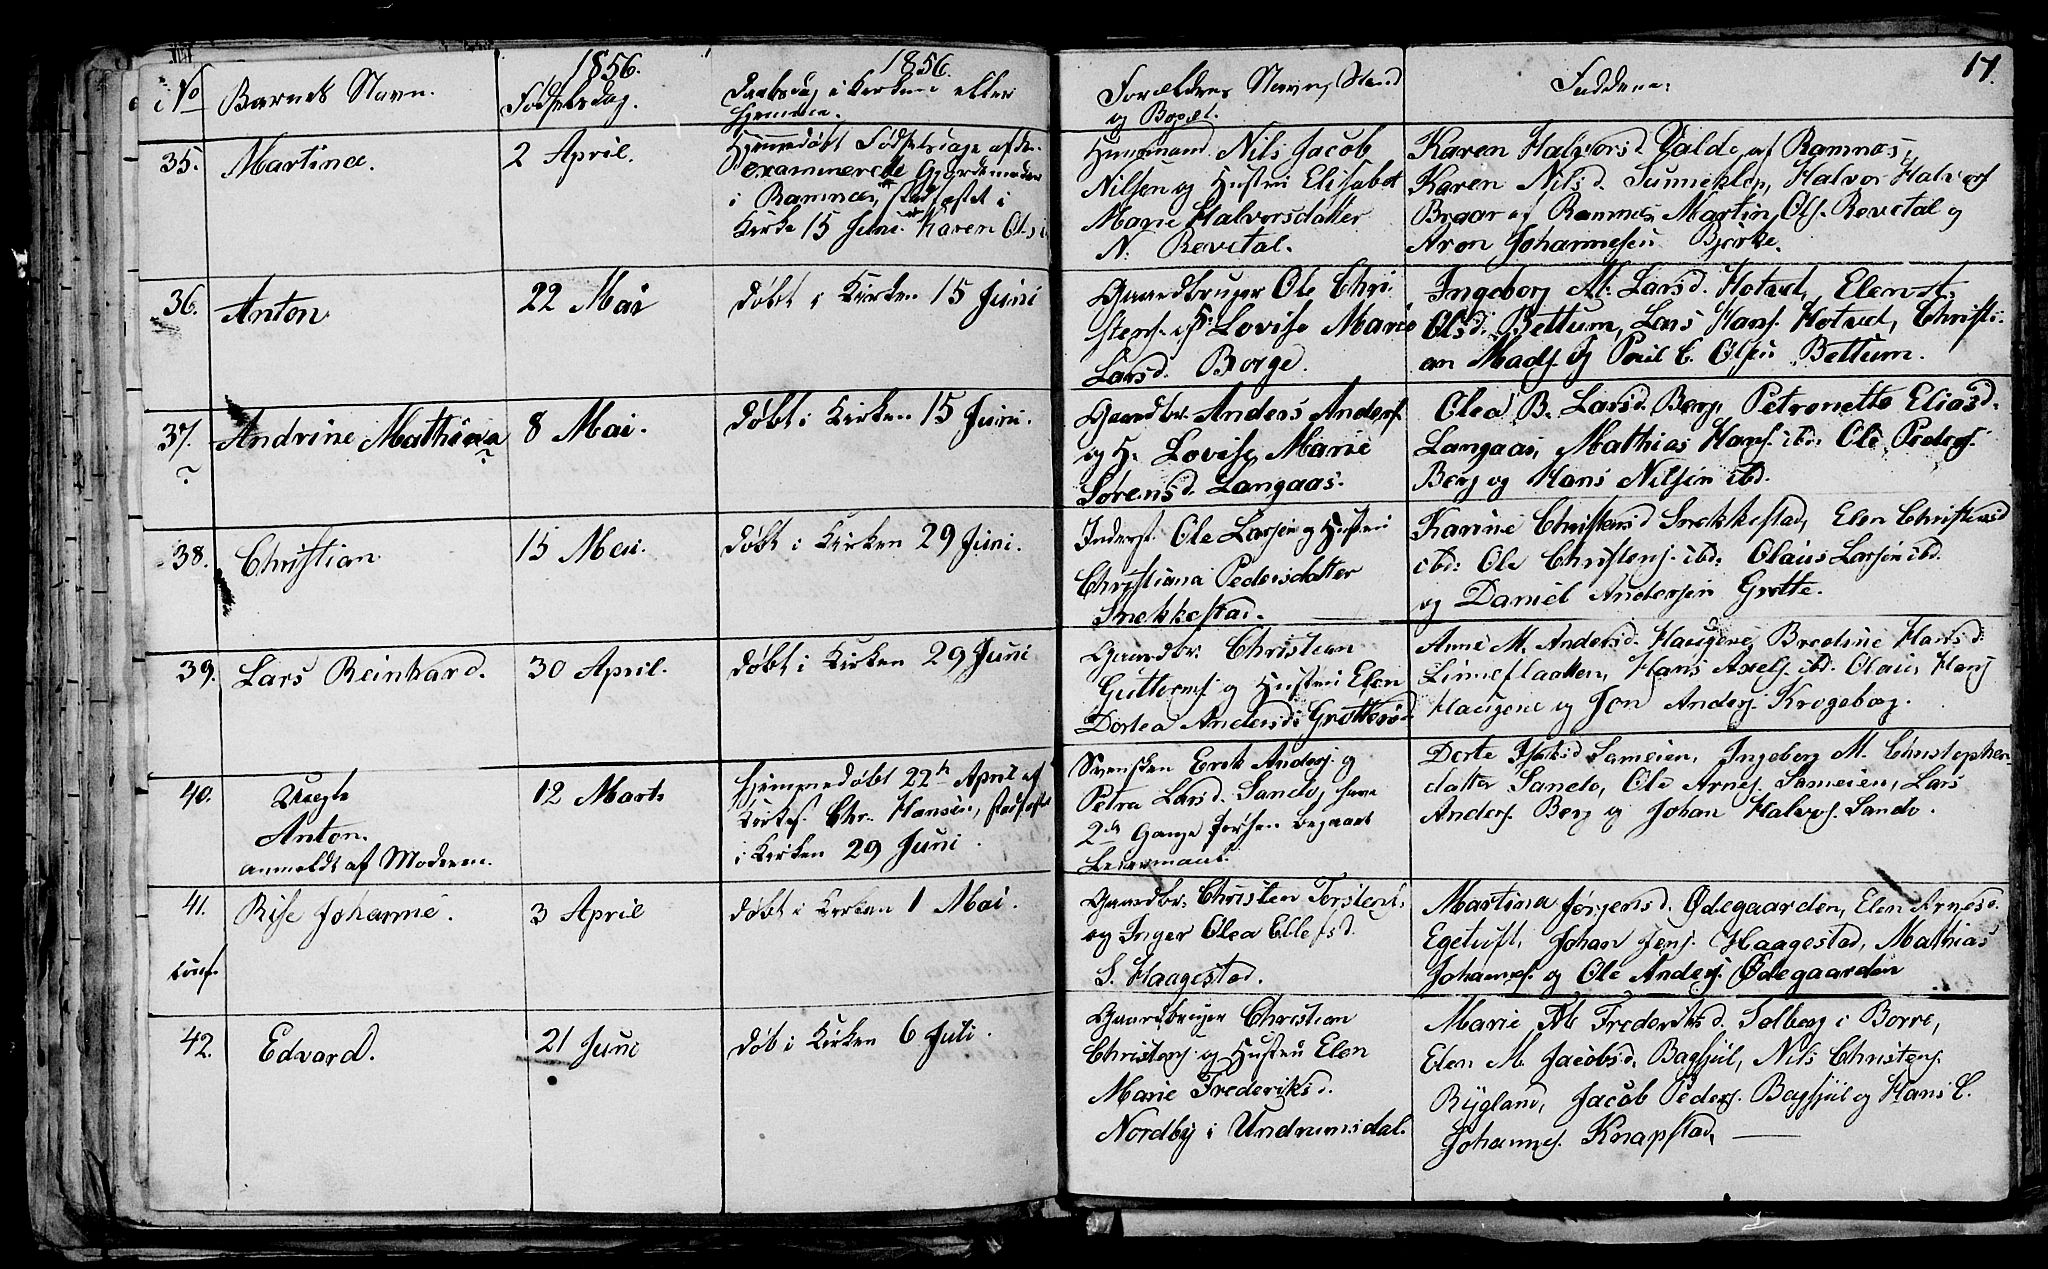 17.
No Barnets Navn.
1856.
Fødselsdag.
1856.
Daabsdag i Kirken eller
Hjemme.
Forældres Navn, Stand
og Bopæl.
Faddere.
35. Martina.
2 April.
Hjemmedøbt Fødselsdage af den
examinerede Gjordemoder
i Ramnæs, stadfæstet i
Kirke 15 Juni. Karen Ols
Huusmand Nils Jacob
Nilsen og Hustru Elisabet
Marie Halvorsdatter
N. Revetal.
Karen Halvorsd. af Ramnæs,
Karen Nilsd. Halvor Halvors
Braar af Ramnes, Martin Ols. Revetal og
Aron Johannesen Bjerke.
36. Anton
22 Mai
Døbt i Kirken 15 Juni
Gaardbruger Ole Chri
stens. og H. Lovise Marie
Larsd. Borge.
Ingeborg M. Larsd. Hotvet, Elen
Olsd. Bettum, Lars Hans. Hotvet, Christi-
an Mads. og Poul C. Olsen Bettum.
37. Andrine Mathina
?
?
8 Mai.
Døbt i Kirken 15 Juni.
Gaardbr. Anders Anders.
og H. Lovise Marie
Sørensd. Langaas.
Olea B. Larsd. Berg, Petronette Eliasd.
Langaas, Mathias Hans. ibd: Ole Peders.
Berg og Hans Nilsen ibd.
38. Christian
15 Mai.
Døbt i Kirken 29 Juni.
Inderst. Ole Larsen og Hustru
Christiana Pedersdatter
Snekkestad.
Karine Christensd Snekkestad, Elen Christensd
ibd: Ole Christens. ibd: Olaus Larsen ibd.
og Daniel Andersen Grotte.
39. Lars Reinhard.
30 April.
Døbt i Kirken 29 Juni
Gaardbr. Christian
Guttorms. og Hustru Elen
Dortea Andersd: Grotterød
Anne M. Andersd. Haugene, Bredine Hansd.
Linneflaatten, Hans Axels. ibd. Olaus Hans
Haugene og Jon Anders. Krogeborg.
40. Uægte
Anton.
anmeldt af Moderen.
12 Marts
Hjemmedøbt 22de April af
Kirkes. Chr. Hansen, stadfæstet
i Kirken 29 Juni.
Svensken Erik Anders. og
Petra Larsd. Sando, have
2de Gange forhen begaaet
Leiermaal.
Dorte Isaksd Sameien, Ingeborg M. Christopher-
datter Sando, Ole Arnes. Sameien, Lars
Anders. Berg og Johan Halvors. Sando.
41. Rise Johanne.
3 April
Døbt i Kirken 1 Mai.
Gaardbr. Christen Torstens.
og Inger Olea Ellefsd.
S. Haagestad.
Martina Jørgensd. Ødegaarden, Elen Arnesd.
Egetuft, Johan Jens. Haagestad, Mathias
Johannes. og Ole Anders. Ødegaarden
42. Edvard.
21 Juni
Døb i Kirken 6 Juli.
Gaardbruger Christian
Christens. og Hustru Elen
Marie Frederiksd.
Nordby i Undrumsdal.
Marie M Frederiksd. Solberg i Borre,
Elen M. Jacobsd. Bagsjül, Nils Christens.
Rygland, Jacob Peders. Bagsjül og Hans C.
Johannes. Knapstad,